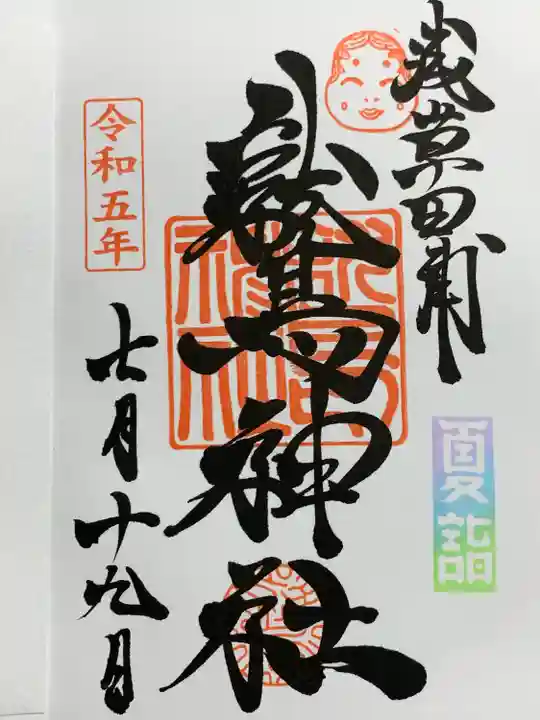 浅草田甫
鷲神社
夏詣
令和五年
七月十九日